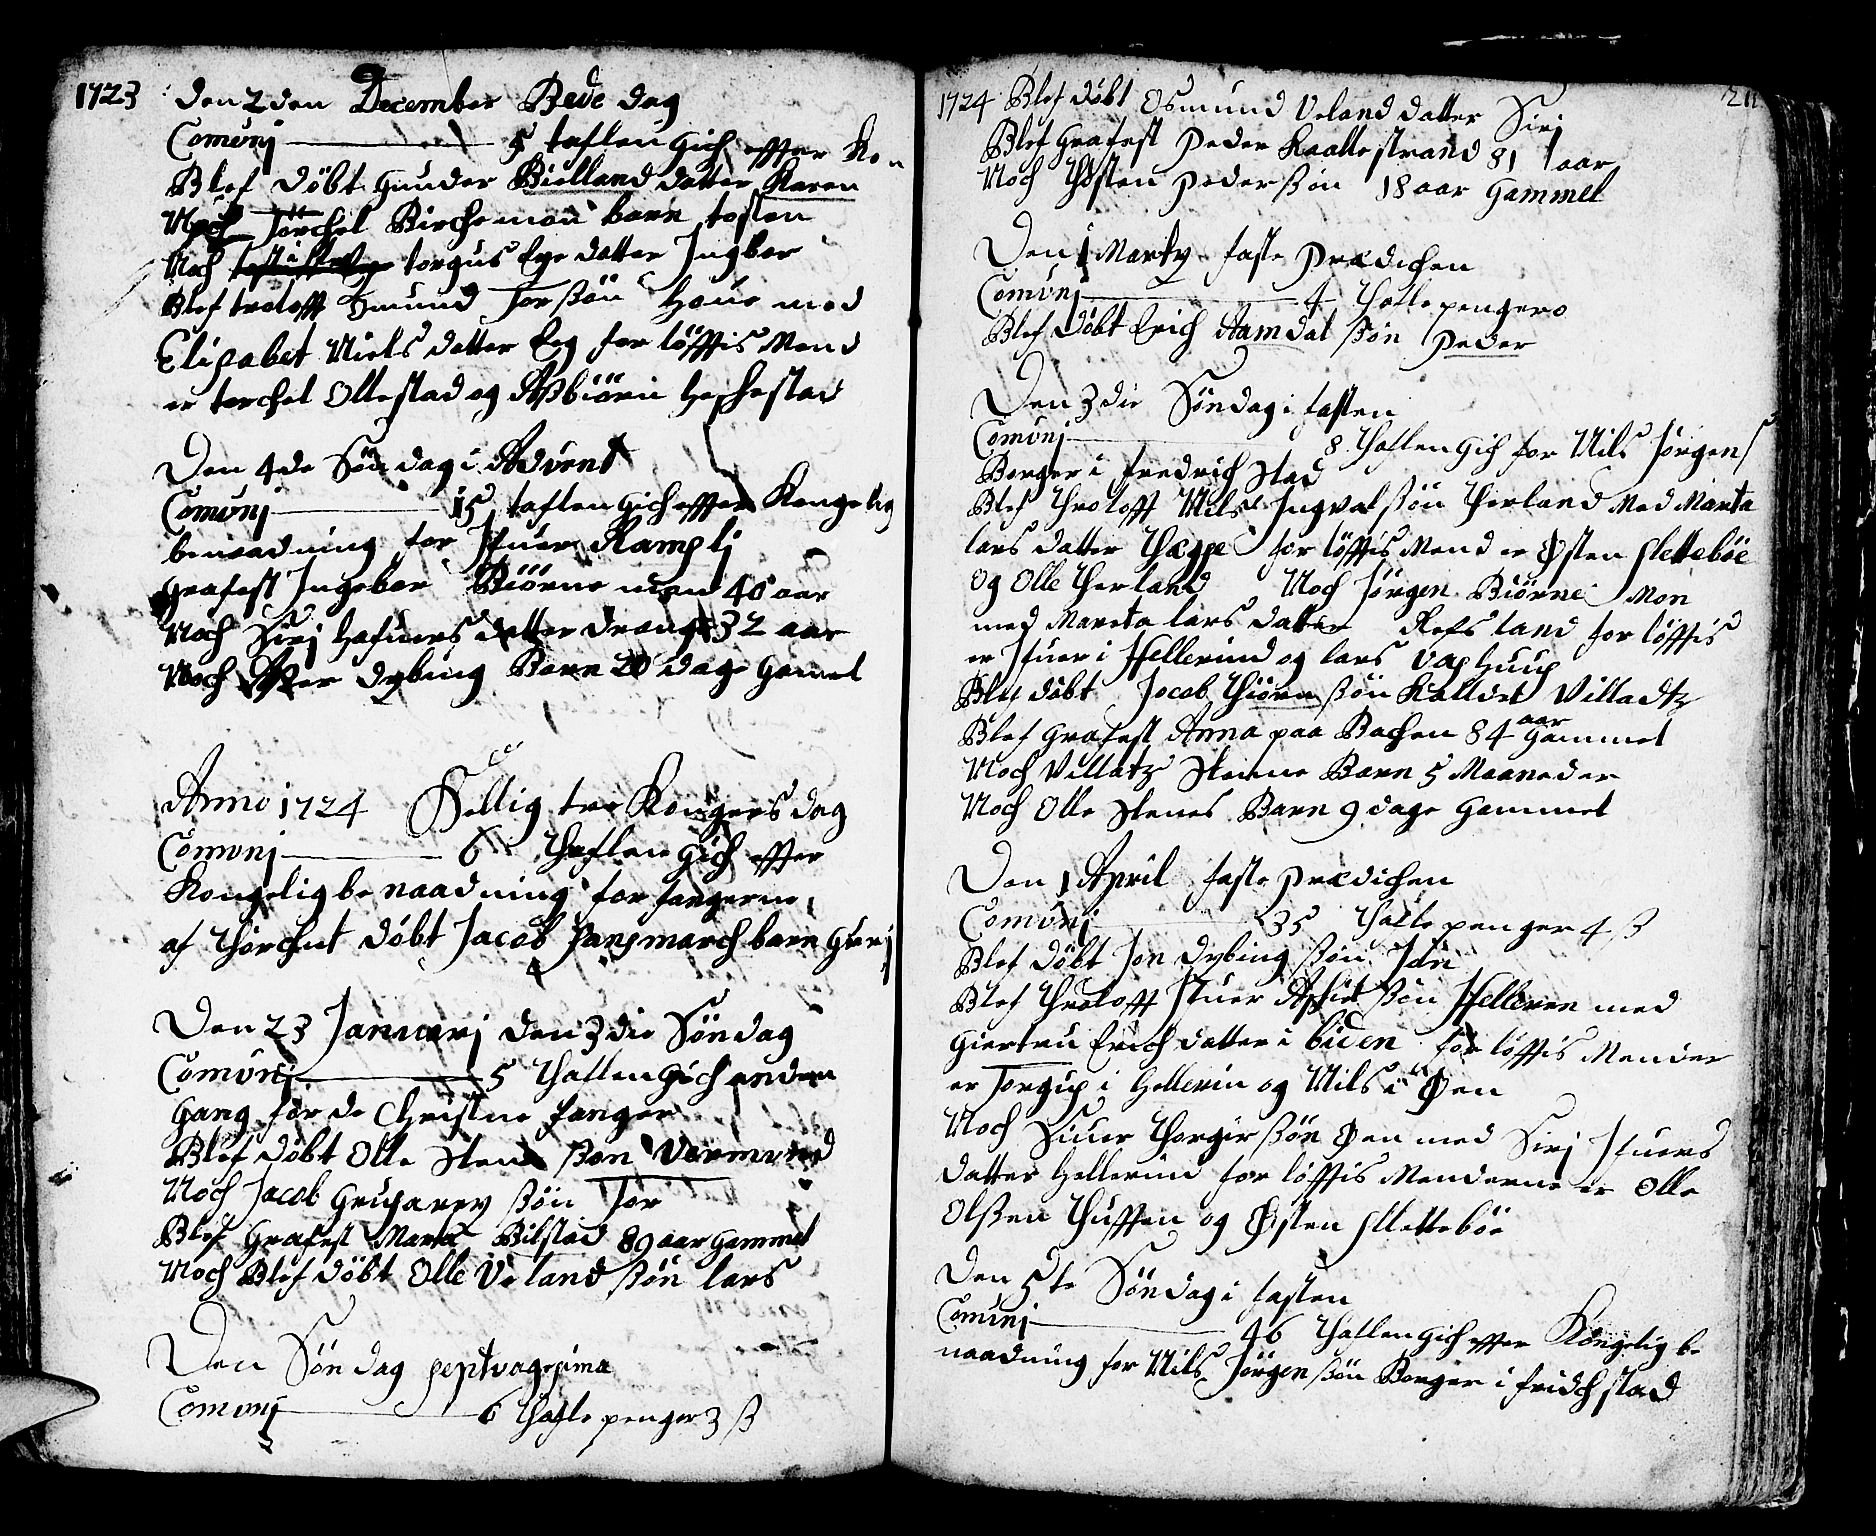 1723 den 2den December Bede dag
Comunj 5 taflen gich effter Kon
Blef döbt Gunder Bielland datter Karen
Noch Törchel Birchemon barn tosten
Noch torgus Ege datter Ingbor
Blef troloftt Omund Torssön Haue med
Elisabet Niels datter Eeg for löfftis Mend
er torchel Ollestad og Assbiörn Heshestad
Den 4de Söndag i Advent
Comunj 15 taflen gich effter Kongelig
benaadning for Ifuer Rampli
grafest Ingebor Biörnemon 40 aar
Noch Sirj Hafuers datter Drangs 32 aar
Noch Dybing Barn 20 dage gamel
Anno 1724 Hellig tre Kongers dag
Comunj 6 Thaflen gich effter
Kongelig benaadning for fangerne
af döbt Jacob barn Gurj
Den 23 Januarj den 3die Söndag
Comunj 5 Thaflen gich anden
gang for de Christne fanger
Blef döbt Olle Stene sön Vermund
Noch Jacob sön Tor
Blef Grafest Marta Bilstad 89 aar gammel
Noch Blef döbt Olle Veland sön lars
Den Söndag septvagesima
Comunj 6 Thafle penger 3 ß
1724 Blef döbt Osmund Veland datter Sirj
Blef grafest Peder Kaallestrand 81 aar
Noch Thosten Pederssön 18 aar gammel
Den 1 Marty faste Prædichen
Comunj 4 Thafle pengero
Blef döbt Erich Aamdal sön Peder
Den 3die Söndag i fasten
Comunj 8 Thaflen gich for Nils Jörgens
Borger i fredrich Stad
Blef Throloftt Nils Ingvalssön Therland Med Marta
lars datter Thegpe for löfftis Mend er Østen slettebøe
og Olle Therland Noch Jörgen Biörne Mon
med Mareta lars datter Refsland for löfftis
er Ifuer i Hellerind og lars
Blef döbt Jocob Thiörn sön Kalldet Villadtz
Blef Grafest Anna paa Bachen 84 aar gammel
Noch Villatz Stenne Barn 5 Maaneder
Noch Olle Stenes Barn 9 dage gammel
Den 1 April faste Prædichen
Comunj 35 Thafle penger 4 ß
Blef döbt Jon Dybing sön Jön
Blef Throloftt Ifuer sön Helleren med
Giertru Erich datter i biden for löfftis Mender
er Torgus i Hellerin og Nils i Øen
Noch Siuer Thorgirssön Øen med Sirj Ifuers
datter Hellerind for löfftis Menderne er Olle
Olssen Thuffen og Østen Slettebøe
Den 5te Söndag i fasten
Comunj 46 Thaflen gich effter Kongelig be
naadning for Nils Jörgenssön Borger i fridchstad